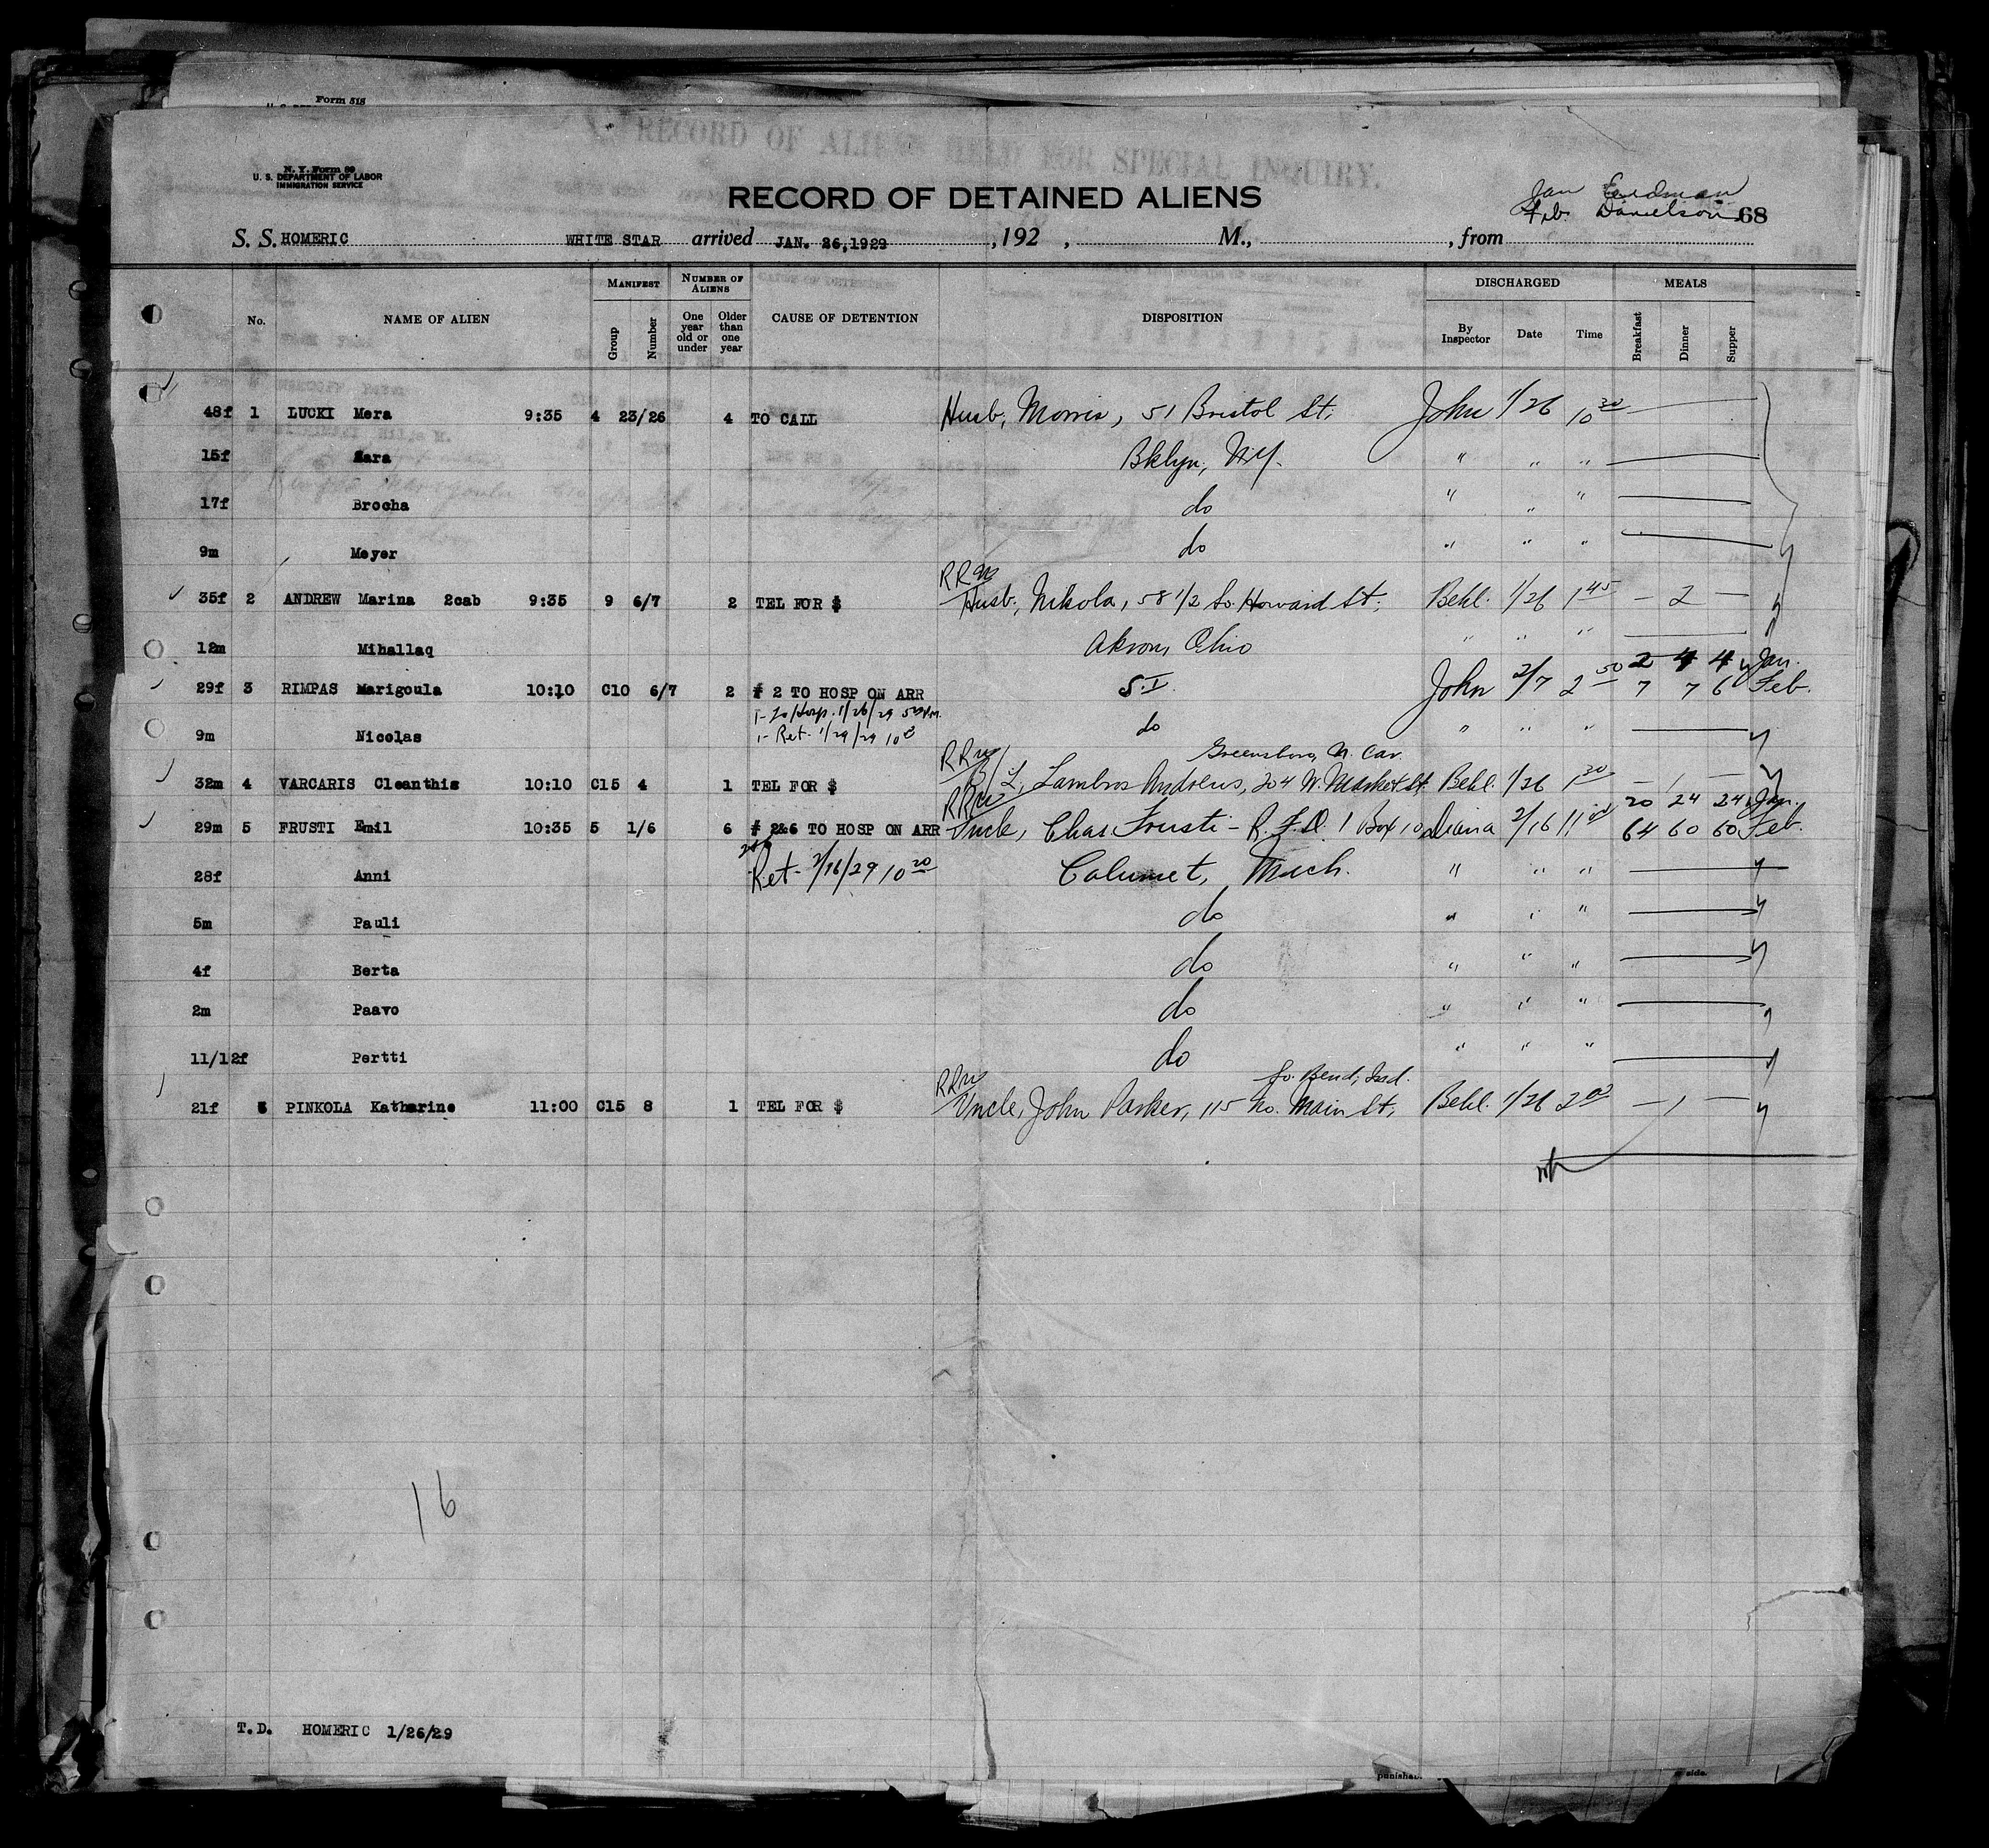 Form 518
RECORD OF ALIENS HELD FOR SPECIAL INQUIRY.
N. Y. Form 89
U. S. DEPARTMENT OF LABOR
IMMIGRATION SERVICE
RECORD OF DETAINED ALIENS
Jan
Feb. Danielson 68
S. S. HOMERIC WHITE STAR arrived JAN. 26,1929 ,192 , M., , from
No. NAME OF ALIEN MANIFEST Group Number NUMBER OF ALIENS One year old or under Older than one year CAUSE OF DETENTION DISPOSITION DISCHARGED By Inspector Date Time MEALS Breakfast Dinner Supper
48f 1 LUCKI Mera 9:35 4 23/26 4 TO CALL Husb, Morris, 51 Bristol St, John 1/26 10 30
15f Sara Bklyn, N.Y. " " "
17f Brocha do " " "
9m Meyer do " " "
RR
35f 2 ANDREW Marina 2cab 9:35 9 6/7 2 TEL FOR $ Husb, Nikola, 58 1/2 So. Howard St. Behl. 1/26 1 45 – 2 –
12m Mihallaq Akron, Ohio " " "
2 4 4 Jan.
29f 3 RIMPAS Marigoula 10:10 C10 6/7 2 # 2 TO HOSP ON ARR S.I. John 2/7 2 50 7 7 6 Feb.
1- To Hosp. 1/26/29
9m Nicolas 1- Ret. 1/29/29 do " " "
RR Greensboro, N. Car.
32m 4 VARCARIS Cleanthis 10:10 C15 4 1 TEL FOR $ B/L, Lambros Andrews, 204 W. Market St. Behl. 1/26 1 30 – 1 –
RR 20 24 24 Jan.
29m 5 FRUSTI Emil 10:35 5 1/6 6 # 2&6 TO HOSP ON ARR Uncle, Chas. Frusti - R.F.D. 1 Box 10 Diana 2/16 11 00 64 60 60 Feb.
2&6
28f Anni Ret 2/16/29 10 20 Calumet, Mich. " " "
5m Pauli do " " "
4f Berta do " " "
2m Paavo do " " "
11/12f Pertti do " " "
RR So. Bend, Ind.
21f 6 PINKOLA Katharine 11:00 C15 8 1 TEL FOR $ Uncle, John Parker, 115 No. Main St, Behl. 1/26 2 00 – 1 –
16
T.D. HOMERIC 1/26/29
side.